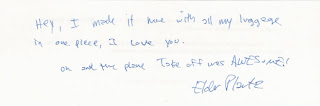 Hey, I made it here with all my luggage
in one piece, I love you.
oh and the plane Take off was AWESOME!
Elder